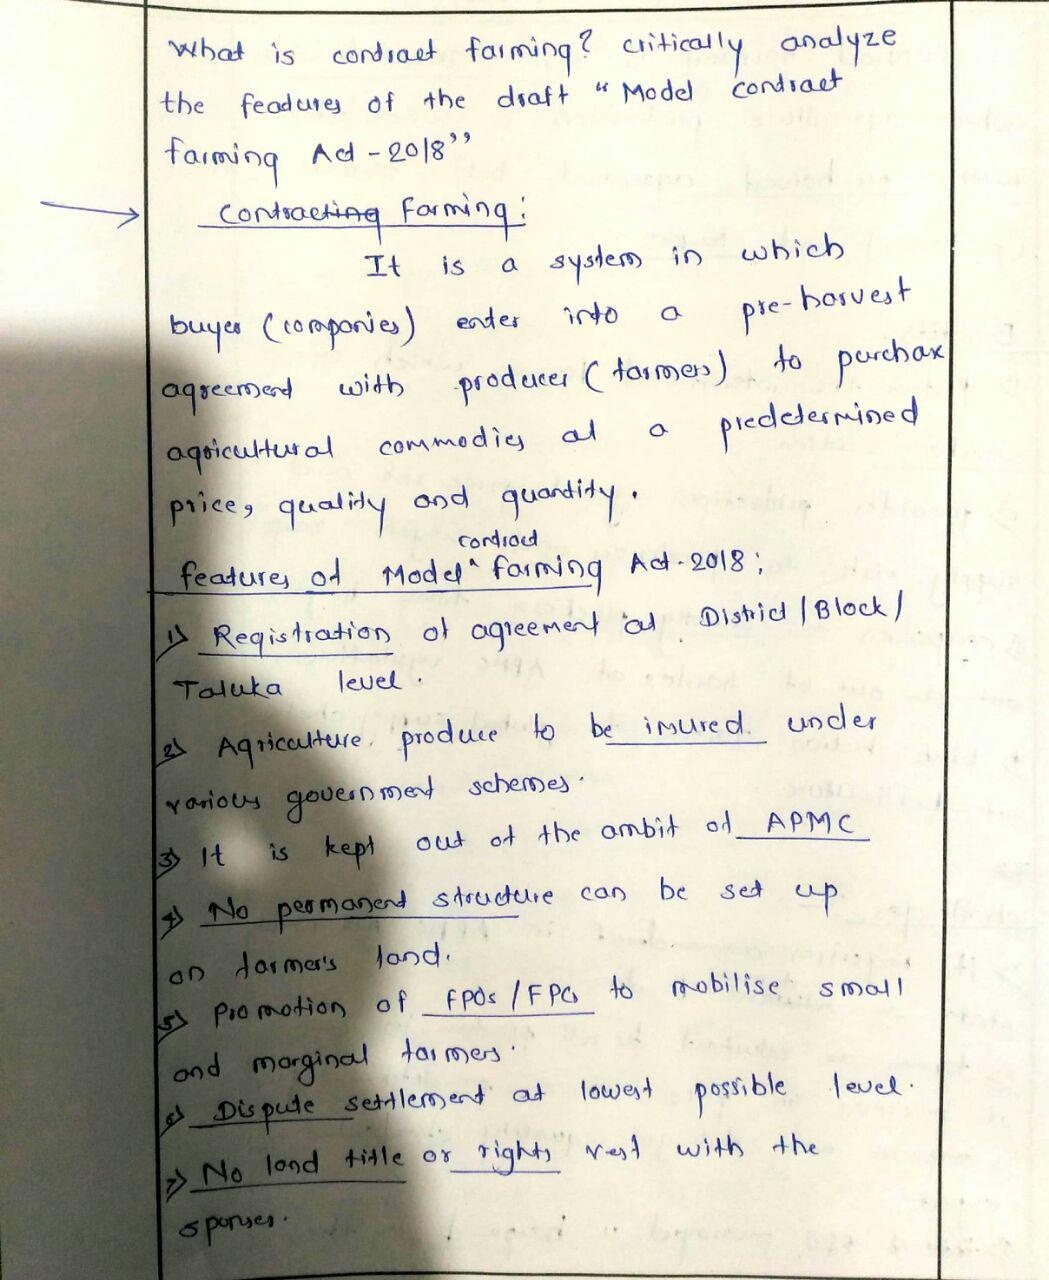 What is contract farming? critically analyze
the features of the draft “Model contract
farming Act - 2018”
contracting farming :
It is a system in which
buyer (companies) enter into a pre-harvest
agreement with producer (farmers) to purchase
agricultural commodies at a predetermined
price, quality and quantity.
contract
features of Model ^ farming Act - 2018 :
1) Registration of agreement at District / Block /
Taluka level.
2) Agriculture produce to be insured under
various government schemes.
3) It is kept out of the ambit of APMC
4) No permanent structure can be set up
on farmer's land.
5) Promotion of FPOs / FPCs to mobilise small
and marginal farmers.
6) Dispute settlement at lowest possible level.
7) No land title or rights vest with the
sponser.